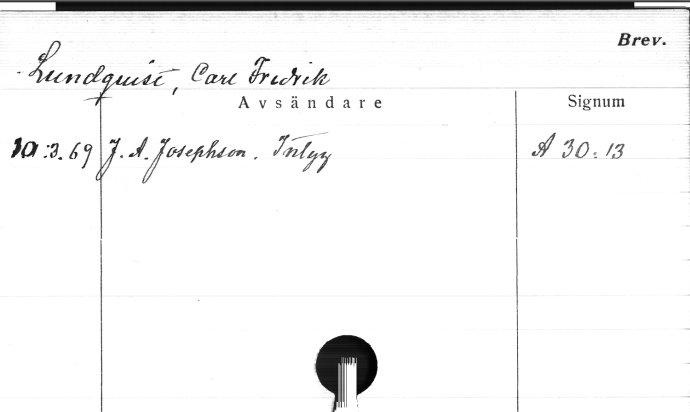 Brev.
Lundquist, Carl Fredrik
Avsändare Signum
10:3.69 J. A. Josephson. A 30:13